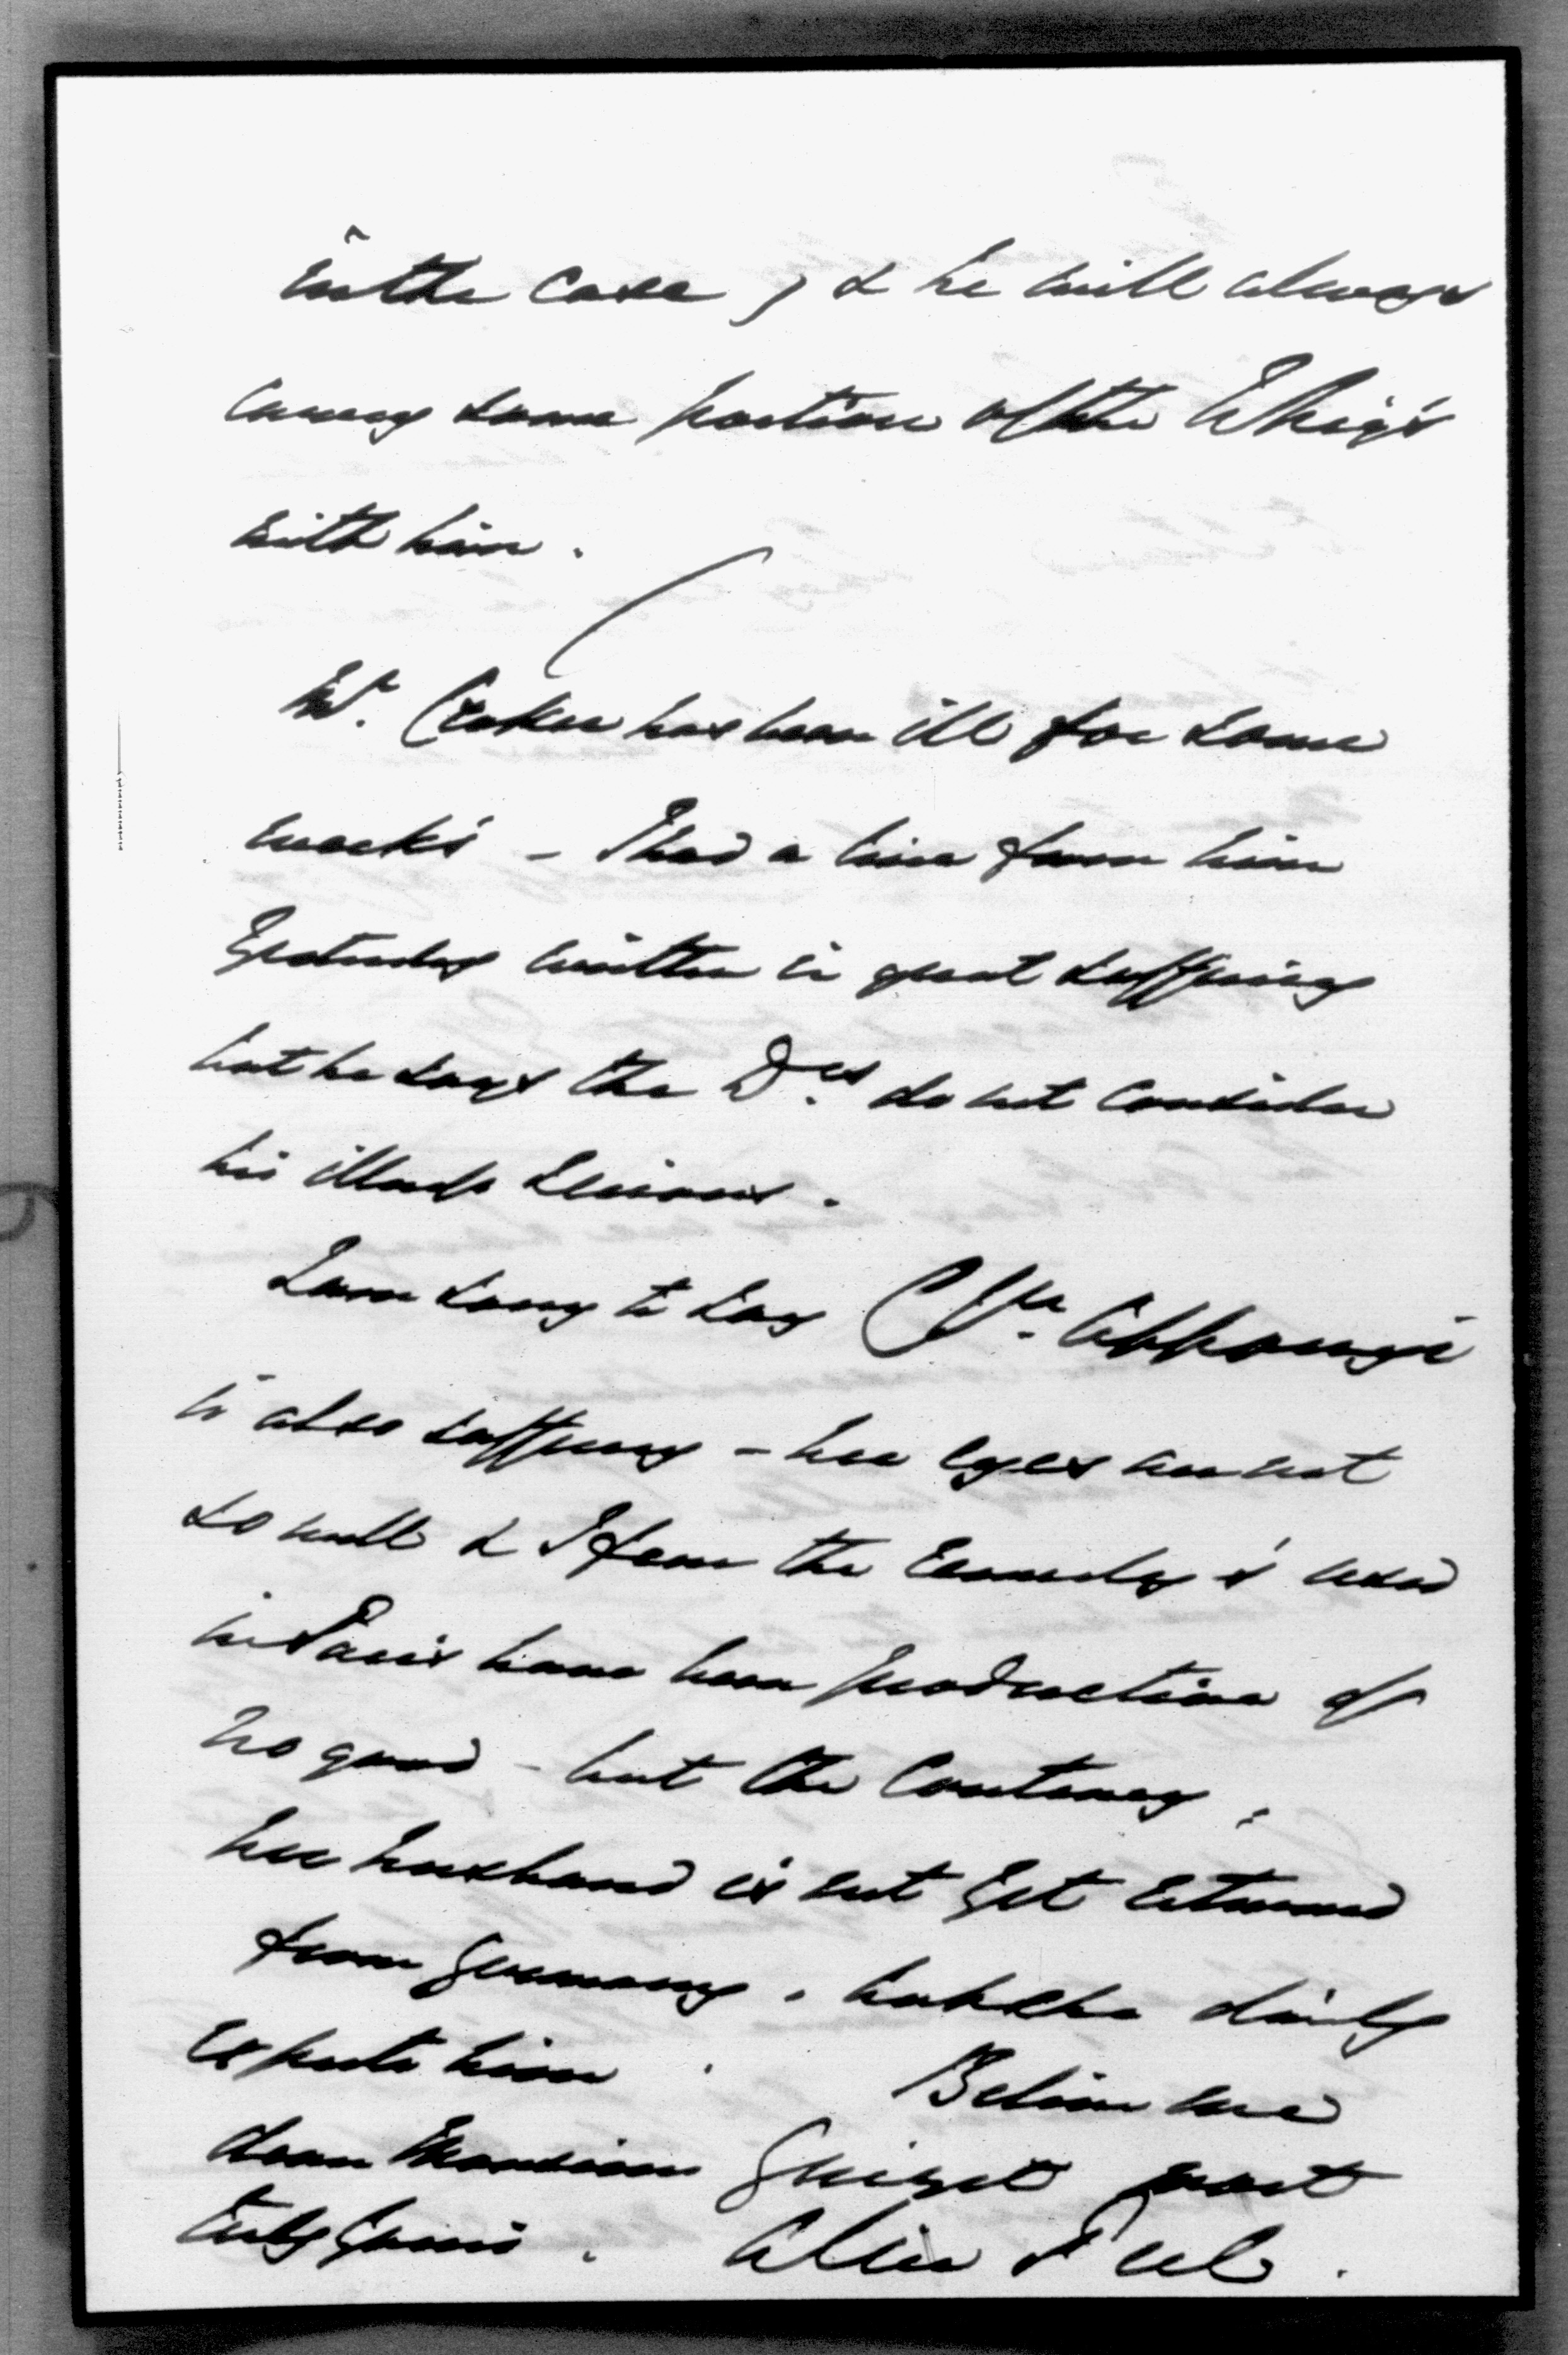 in the case, & he will always
carry some portion of the Whigs
with him.
Mr. Croker has been ill for some
weeks - I had a line from him
Yesterday written in great suffering
but he says the Drs. do not consider
his illness serious.
I am sorry to say Css. Apponyi
is also suffering - her eyes are not
so well & I fear the remedys used
in Paris have been productive of
no good - but the Contrary.
her husband is not yet returned
from Germany. but she daily
expects him. Believe me
dear Monsieur Guizot most
truly yours. Peel.